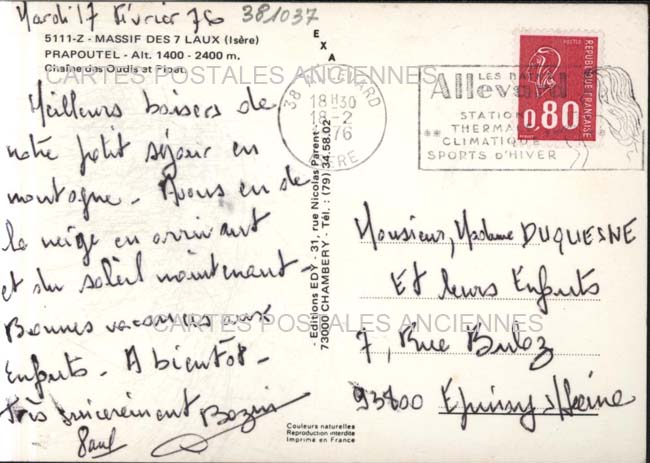 Mardi 17 Février 76
381037
5111-Z - MASSIF DES 7 LAUX (Isère)
PRAPOUTEL - Alt. 1400 - 2400 m.
Chaîne des Oudis et Pipet
CARTES POSTALES ANCIENNES
Meilleurs baisers de
notre petit séjour en
montagne - Avons eu de
la neige en arrivant
et du soleil maintenant -
Bonnes vacances aux
Enfants - A bientôt -
très sincèrement
EXA
- Editions EDY - 31, rue Nicolas Parent -
73000 CHAMBERY - Tél. : (79) 34.58.02
38 ALLEVARD
18H30
18-2
1976
ISERE
LES BAINS
Allevard
STATION
THERMALE
CLIMATIQUE
SPORTS D'HIVER
POSTES
0,80
REPUBLIQUE FRANÇAISE
Monsieur, Madame DUQUESNE
Et leurs Enfants
7, Rue
93800 Epinay s/Seine
CARTES POSTALES ANCIENNES
Couleurs naturelles
Reproduction interdite
Imprimé en France